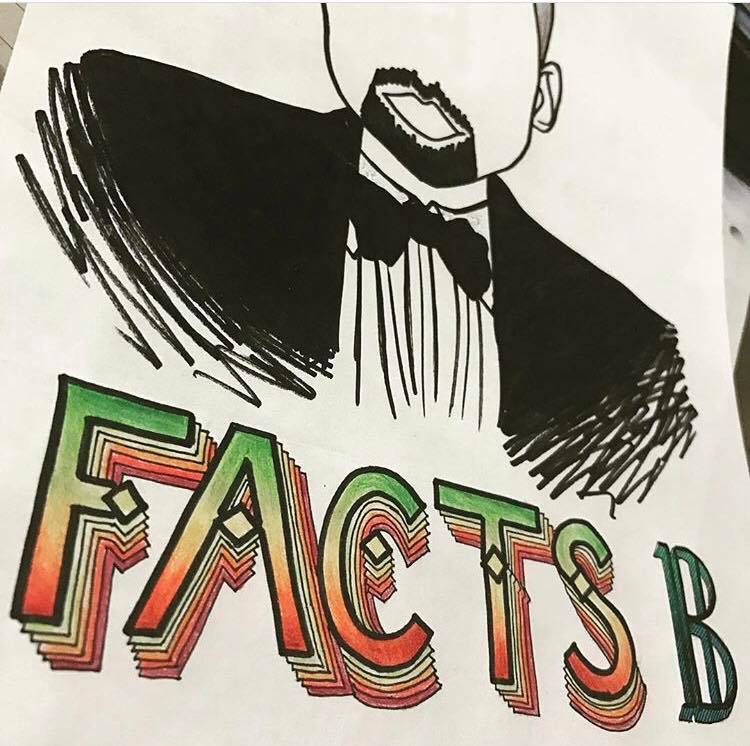 FACTS B